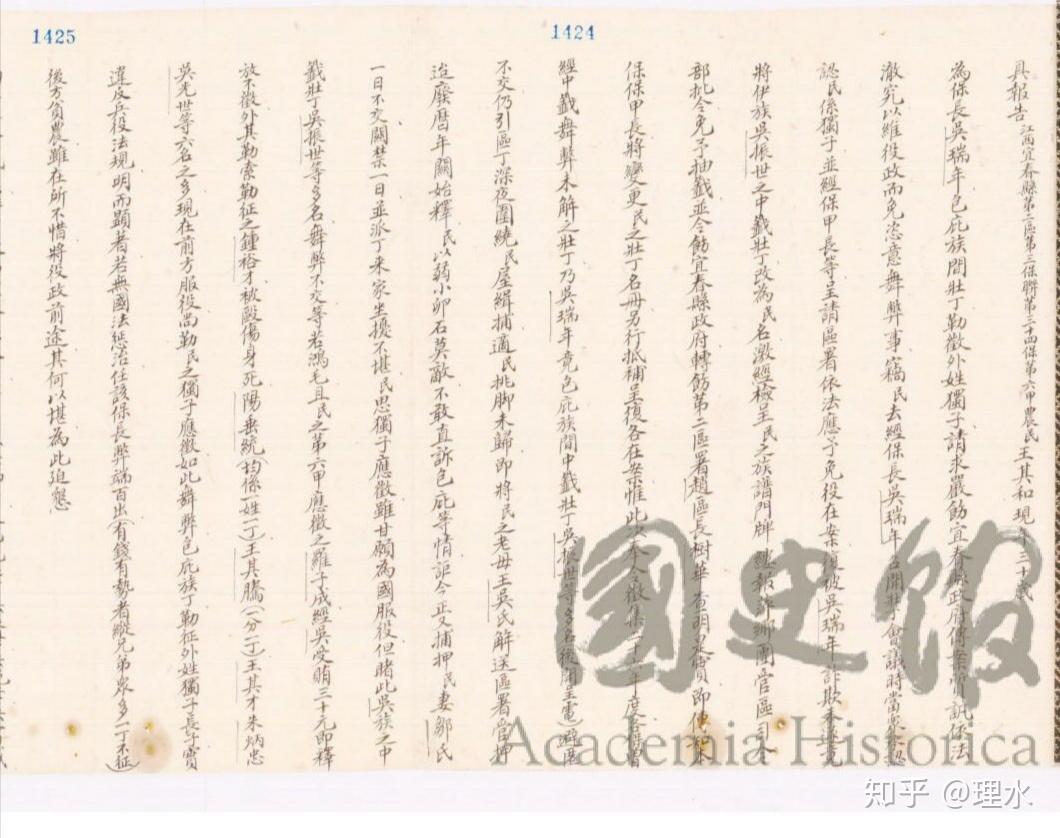 1424
具報告 江西宜春縣第二區第三保聯第二十四保第六甲農民王其和現年三十歲
為保長吳瑞年包庇族間壯丁勒徵外姓獨子請求嚴飭宜春縣政府傳案質訊依法
澈究以維役政而免恣意舞弊事竊民去經保長吳瑞年召開甲會議時當眾承認
認民係獨子並經保甲長等呈請區署依法應予免役在案復被吳瑞年詐欺不遂竟
將伊族吳振世之中籤壯丁改為民名激經檢呈民之族譜門牌經報詳鄉團管區司令
部批令免予抽籤並令飭宜春縣政府轉飭第二區署趙區長樹華查明是實即傳本
保保甲長將變更民之壯丁名冊另行抵補呈復各在案惟此次奉令徵集二十年度應召
經中籤舞弊未解之壯丁乃吳瑞年竟包庇族間中籤壯丁吳振世等多名後閭生電避匿
不交仍引區丁深夜圍繞民屋緝捕適民挑腳未歸即將民之老母王吳氏解送區署管押
迨廢曆年關始釋民以弱小卵石莫敵不敢直訴包庇等情詎今正又捕押民妻鄒氏
一日不交關禁一日並派丁來家坐擾不堪民思獨子應徵雖甘願為國服役但睹此吳族之中
1425
籤壯丁吳振世等多名舞弊不交等若鴻毛且民之第六甲應徵之羅子成經吳受賄三十元而釋
放不徵外其勒索勒征之鍾裕才被毆傷身死陽垂統（均係一姓一丁）王其騰（一分一丁）王其才朱炳忠
吳光世等六名之多現在前方服役尚勒民之獨子應徵如此舞弊包庇族丁勒征外姓獨子長丁實
違反兵役法規明而顯者若無國法懲治任該保長弊端百出（有錢有勢者縱兄弟眾多一丁不征）
後方貧農雖在所不惜將役政前途其何以堪為此迫懇
國史館
Academia Historica
知乎 @理水